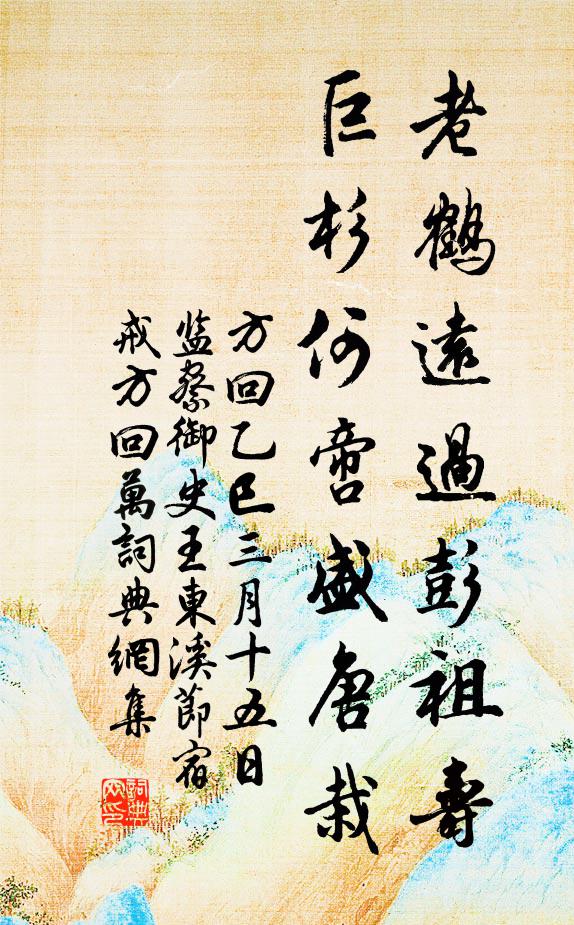 老鶴遠過彭祖壽
巨杉何啻盛唐栽
方回乙巳三月十五日
監察御史王東溪節宿
戒方回萬詞典網集
詞典
网印